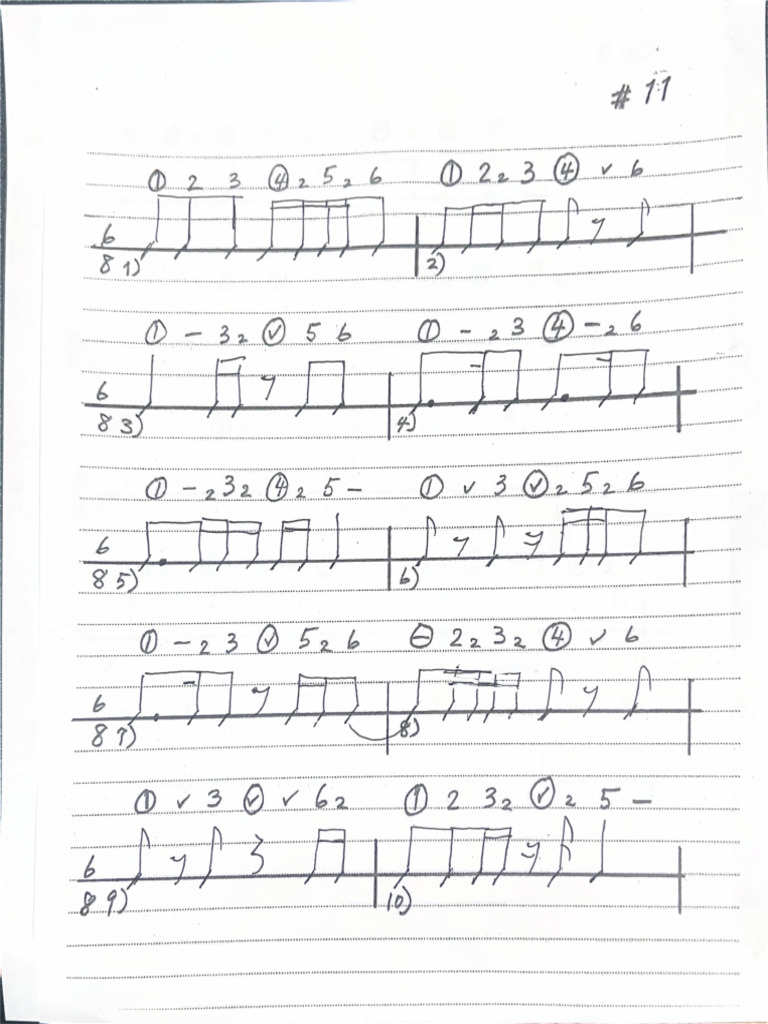 # 11
① 2 3 ④ ₂ 5 ₂ 6 ① 2 ₂ 3 ④ ✓ 6
6
8 1) 2)
① – 3 ₂ ✓ 5 6 ① – ₂ 3 ④ – ₂ 6
6
8 3) 4)
① – ₂ 3 ₂ ④ ₂ 5 – ① ✓ 3 ✓ ₂ 5 ₂ 6
6
8 5) 6)
① – ₂ 3 ✓ 5 ₂ 6 ⊖ 2 ₂ 3 ₂ ④ ✓ 6
6
8 7) 8)
① ✓ 3 ✓ ✓ 6 ₂ ① 2 3 ₂ ✓ ₂ 5 –
6
8 9) 10)